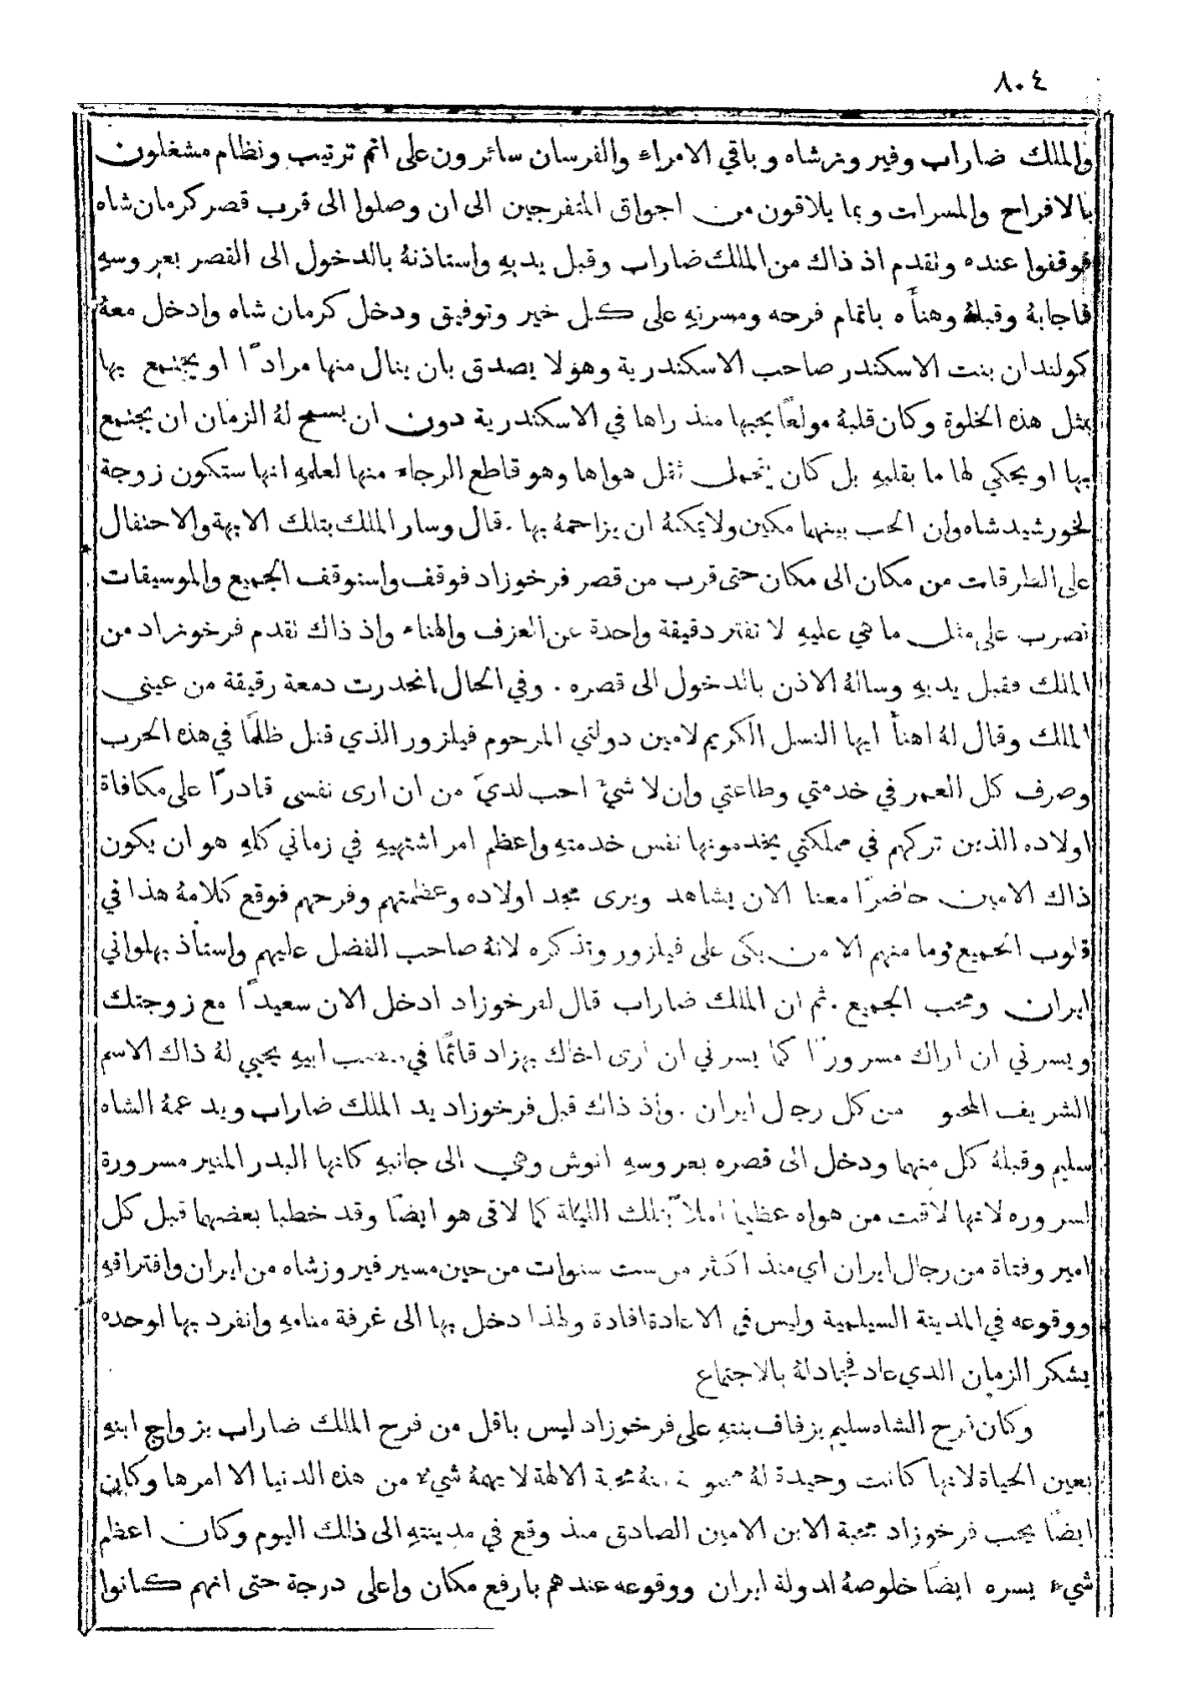 ٨٠٤
والملك ضاراب وفيروزشاه وباقي الامراء والفرسان سائرون على اتم ترتيب ونظام مشغلون
بالافراح والمسرات وبما يلاقون من اجواق المتفرجين الى ان وصلوا الى قرب قصر كرمان شاه
فوقفوا عنده وتقدم اذ ذاك من الملك ضاراب وقبل يديهِ واستاذنهُ بالدخول الى القصر بعروسهِ
فاجابهُ وقبلهُ وهنأه باتمام فرحه ومسرتهِ على كل خير وتوفيق ودخل كرمان شاه وادخل معهُ
كولندان بنت الاسكندر صاحب الاسكندرية وهو لا يصدق بان ينال منها مرادًا او يجتمع بها
بمثل هذه الخلوة وكان قلبهُ مولعًا بحبها منذ راها في الاسكندرية دون ان يسمح لهُ الزمان ان يجتمع
بها او يحكي لها ما بقلبهِ بل كان يتحمل ثقل هواها وهو قاطع الرجاء منها لعلمهِ انها ستكون زوجة
لخورشيد شاه وان الحب بينهما مكين ولا يمكنهُ ان يزاحمهُ بها . قال وسار الملك بتلك الابهة والاحتفال
على الطرقات من مكان الى مكان حتى قرب من قصر فرخوزاد فوقف واستوقف الجميع والموسيقات
تضرب على مثل ما هي عليهِ لا تفتر دقيقة واحدة عن العزف والهناء واذ ذاك تقدم فرخوزاد من
الملك فقبل يديهِ وسالهُ الاذن بالدخول الى قصره . وفي الحال انحدرت دمعة رقيقة من عيني
الملك وقال لهُ اهنأ ايها النسل الكريم لامين دولتي المرحوم فيلزور الذي قتل ظلمًا في هذه الحرب
وصرف كل العمر في خدمتي وطاعتي وان لا شيء احب لديَ من ان ارى نفسي قادرًا على مكافاة
اولاده الذين تركهم في مملكتي يخدمونها نفس خدمتهِ واعظم امر اشتهيهِ في زماني كلهِ هو ان يكون
ذاك الامين حاضرًا معنا الان يشاهد ويرى مجد اولاده وعظمتهم وفرحهم فوقع كلامهُ هذا في
قلوب الجميع وما منهم الا من بكى على فيلزور وتذكره لانهُ صاحب الفضل عليهم واستاذ بهلواني
ايران ومحب الجميع . ثم ان الملك ضاراب قال لفرخوزاد ادخل الان سعيدًا مع زوجتك
ويسرني ان اراك مسرورًا كما يسرني ان ارى اخاك بهزاد قائمًا في منصب ابيهِ يحيي لهُ ذاك الاسم
الشريف المحبو من كل رجال ايران . واذ ذاك قبل فرخوزاد يد الملك ضاراب ويد عمهُ الشاه
سليم وقبلهُ كل منهما ودخل الى قصره بعروسهِ انوش وهي الى جانبهِ كانها البدر المنير مسرورة
لسروره لانها لاقت من هواه عظيما املاً بتلك الليلة كما لاقى هو ايضًا وقد خطبا بعضهما قبل كل
امير وفتاة من رجال ايران اي منذ اكثر من ست سنوات من حين مسير فيروزشاه من ايران وافتراقهِ
ووقوعه في المدينة السيلمية وليس في الاعادة افادة ولهذا دخل بها الى غرفة منامهِ وانفرد بها لوحده
يشكر الزمان الذي عاد فجاد لهُ بالاجتماع
وكان فرح الشاه سليم بزفاف بنتهِ على فرخوزاد ليس باقل من فرح الملك ضاراب بزواج ابنهِ
بعين الحياة لانها كانت وحيدة لهُ محبة الالهة لا يهمهُ شيء من هذه الدنيا الا امرها وكان
ايضًا يحب فرخوزاد محبة الابن الامين الصادق منذ وقع في مدينتهِ الى ذلك اليوم وكان اعظم
شيء يسره ايضًا خلوصهُ لدولة ايران ووقوعه عندهم بارفع مكان واعلى درجة حتى انهم كانوا